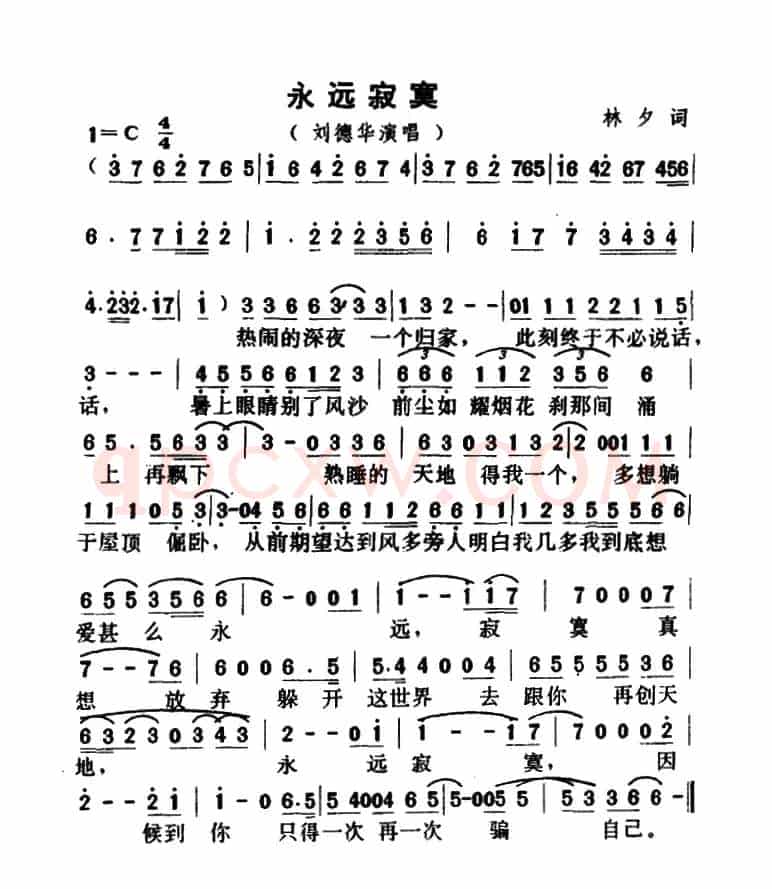 永远寂寞
1=C 4/4 （刘德华演唱） 林夕 词
(3 7 6 2 7 6 5 | 1 6 4 2 6 7 4 | 3 7 6 2 765 | 16 42 67 456 |
6 . 7 7 1 2 2 | 1 . 2 2 2 3 5 6 | 6 1 7 7 3 4 3 4 |
4.232.17 | 1 ) 3 3 6 6 3 3 3 | 1 3 2 - - | 01 1 1 2 2 1 1 5 |
热闹的深夜 一个归家， 此刻终于不必说话，
3 - - - | 4 5 5 6 6 1 2 3 | 6 6 6 1 1 2 3 5 6 6
话， 暑上眼睛别了风沙 前尘如 耀烟花 刹那间 涌
6 5 . 5 6 3 3 | 3 - 0 3 3 6 | 6 3 0 3 1 3 2 | 2 001 1 1
上 再飘下 熟睡的 天地 得我一个， 多想躺
1 1 1 0 5 3 | 3-04 5 6 | 6 6 1 1 2 3 | 2 3 5 5 5 6 6
于屋顶 倔卧， 从前期望达到风多旁人明白我几多我到底想
6 5 5 3 5 6 6 | 6 - 0 0 1 | 1 - - 1 1 7 | 7 0 0 0 7
爱甚么永 远， 寂 寞 真
7 - - 7 6 | 6 0 0 6 . 5 | 5 . 4 4 0 0 4 | 6 5 5 5 5 3 6
想 放弃 躲开这世界 去跟你 再创天
6 3 2 3 0 3 4 3 | 2 - - 0 1 | 1 - - 1 7 | 7 0 0 0 2
地， 永 远寂 寞， 因
2 - - 2 1 | 1 - 0 6.5 | 5 4004 6 5 | 5-005 5 | 5 3 3 6 6 - ‖
候到 你 只得一次 再一次 骗 自己。
qpcxw.COM